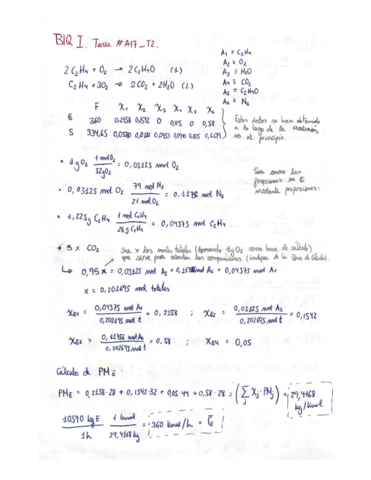 BIQ I. Tarea #A17_T2.
A₁ = C₂H₄
A₂ = O₂
A₃ = H₂O
A₄ = CO₂
A₅ = C₂H₄O
A₆ = N₂
2 C₂H₄ + O₂ → 2 C₂H₄O (1)
C₂H₄ + 3O₂ → 2 CO₂ + 2H₂O (2)
F X₁ X₂ X₃ X₄ X₅ X₆
E 360 0,2158 0,1542 0 0,05 0 0,58
S 334,65
Estos datos se han obtenido
a lo largo de la
no al principio.
• 1g O₂ 1 mol O₂ / 32g O₂ = 0,03125 mol O₂
Para sacar las
proporciones en E
mediante proporciones:
• 0,03125 mol O₂ 79 mol N₂ / 21 mol O₂ = 0,1176 mol N₂
• 1,225g C₂H₄ 1 mol C₂H₄ / 28g C₂H₄ = 0,04375 mol C₂H₄
• 5% CO₂
Sea x los moles totales (tomando 1g O₂ como base de cálculo)
que sirve para calcular las composiciones (indepen. de la Base de Cálculo).
↳ 0,95 x = 0,03125 mol A₂ + 0,1176 mol A₆ + 0,04375 mol A₁
x = 0,202695 mol totales
XE1 = 0,04375 mol A₁ / 0,202695 mol t = 0,2158 ; XE2 = 0,03125 mol A₂ / 0,202695 mol t = 0,1542
XE6 = 0,1176 mol A₆ / 0,202695 mol t = 0,58 ; XE4 = 0,05
Cálculo de PM E
PM E = 0,2158·28 + 0,1542·32 + 0,05·44 + 0,58·28 = (∑ Xj·PMj) = 29,4168 kg/kmol
10590 kg E / 1h 1 kmol / 29,4168 kg = 360 kmol/h = FE